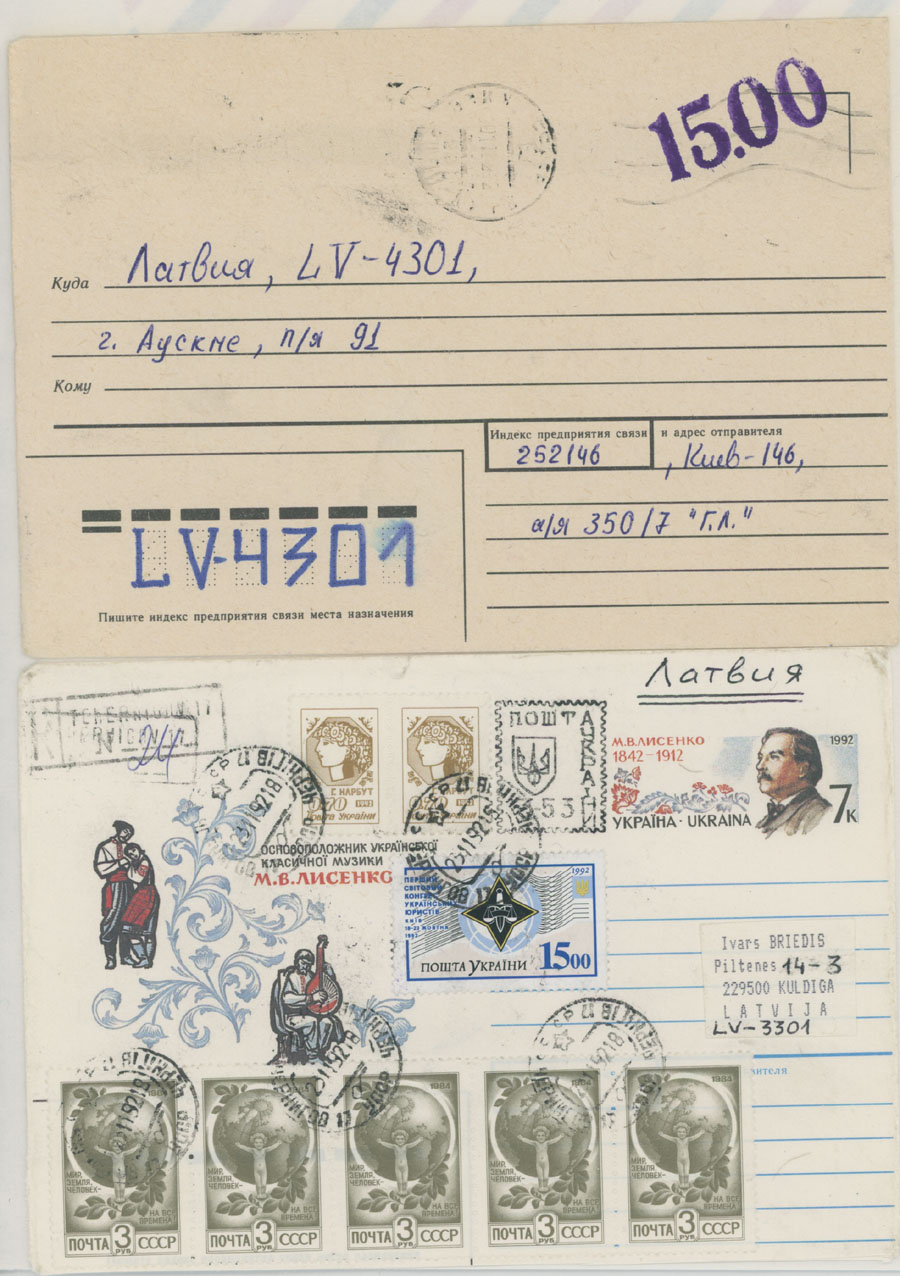 15.00
Куда Латвия, LV-4301,
г. Аускне, п/я 91
Кому
Индекс предприятия связи и адрес отправителя
252146, Киев-146,
а/я 350/7 "Г.Л."
LV-4301
Пишите индекс предприятия связи места назначения
Латвия
№ 24
Г. НАРБУТ
0-70 1992
Пошта України
Г. НАРБУТ
0-70 1992
Пошта України
ПОШТА
УКРАЇНИ
53
М.В.ЛИСЕНКО
1842-1912
1992
7к
УКРАЇНА · UKRAINA
ОСНОВОПОЛОЖНИК УКРАЇНСЬКОЇ
КЛАСИЧНОЇ МУЗИКИ
М.В.ЛИСЕНКО
ПЕРШИЙ
СВІТОВИЙ
КОНГРЕС
УКРАЇНСЬКИХ
ЮРИСТІВ
КИЇВ
18-23 ЖОВТНЯ
1992
1992
ПОШТА УКРАЇНИ 1500
Ivars BRIEDIS
Piltenes 14-3
229500 KULDIGA
LATVIJA
LV-3301
МИР,
ЗЕМЛЯ,
ЧЕЛОВЕК-
НА ВСЕ
ВРЕМЕНА
ПОЧТА 3 РУБ СССР
1984
МИР,
ЗЕМЛЯ,
ЧЕЛОВЕК-
НА ВСЕ
ВРЕМЕНА
ПОЧТА 3 РУБ СССР
1984
МИР,
ЗЕМЛЯ,
ЧЕЛОВЕК-
НА ВСЕ
ВРЕМЕНА
ПОЧТА 3 РУБ СССР
1984
МИР,
ЗЕМЛЯ,
ЧЕЛОВЕК-
НА ВСЕ
ВРЕМЕНА
ПОЧТА 3 РУБ СССР
1984
МИР,
ЗЕМЛЯ,
ЧЕЛОВЕК-
НА ВСЕ
ВРЕМЕНА
ПОЧТА 3 РУБ СССР